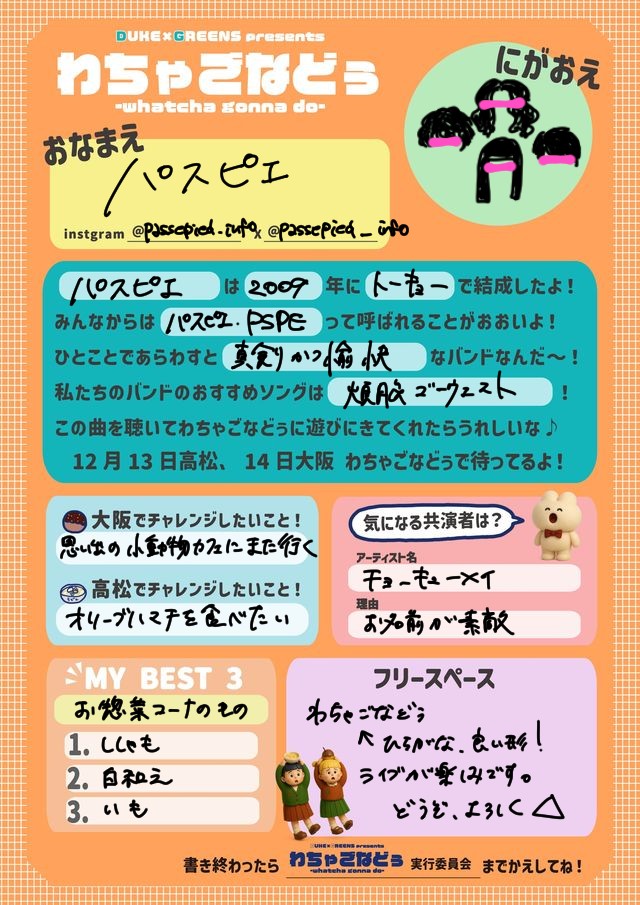 DUKE×GREENS presents
わちゃごなどぅ
-whatcha gonna do-
にがおえ
おなまえ
パスピエ
instgram @passepied_info x @passepied_info
パスピエ は 2009 年に トーキョー で結成したよ！
みんなからは パスピエ.PSPE って呼ばれることがおおいよ！
ひとことであらわすと 真剣かつ愉快 なバンドなんだ〜！
私たちのバンドのおすすめソングは 煩脳ゴーウェスト ！
この曲を聴いてわちゃごなどぅに遊びにきてくれたらうれしいな♪
12月13日高松、14日大阪 わちゃごなどぅで待ってるよ！
大阪でチャレンジしたいこと！
思い出の小動物カフェにまた行く
高松でチャレンジしたいこと！
オリーブハマチを食べたい
気になる共演者は？
アーティスト名
チョーキューメイ
理由
お名前が素敵
MY BEST 3
お惣菜コーナのもの
1. ししゃも
2. 白和え
3. いも
フリースペース
わちゃごなどう
↖ひらがな、良い形！
ライブが楽しみです。
どうぞ、よろしく△
書き終わったら DUKE×GREENS presents わちゃごなどぅ -whatcha gonna do- 実行委員会 までかえしてね！